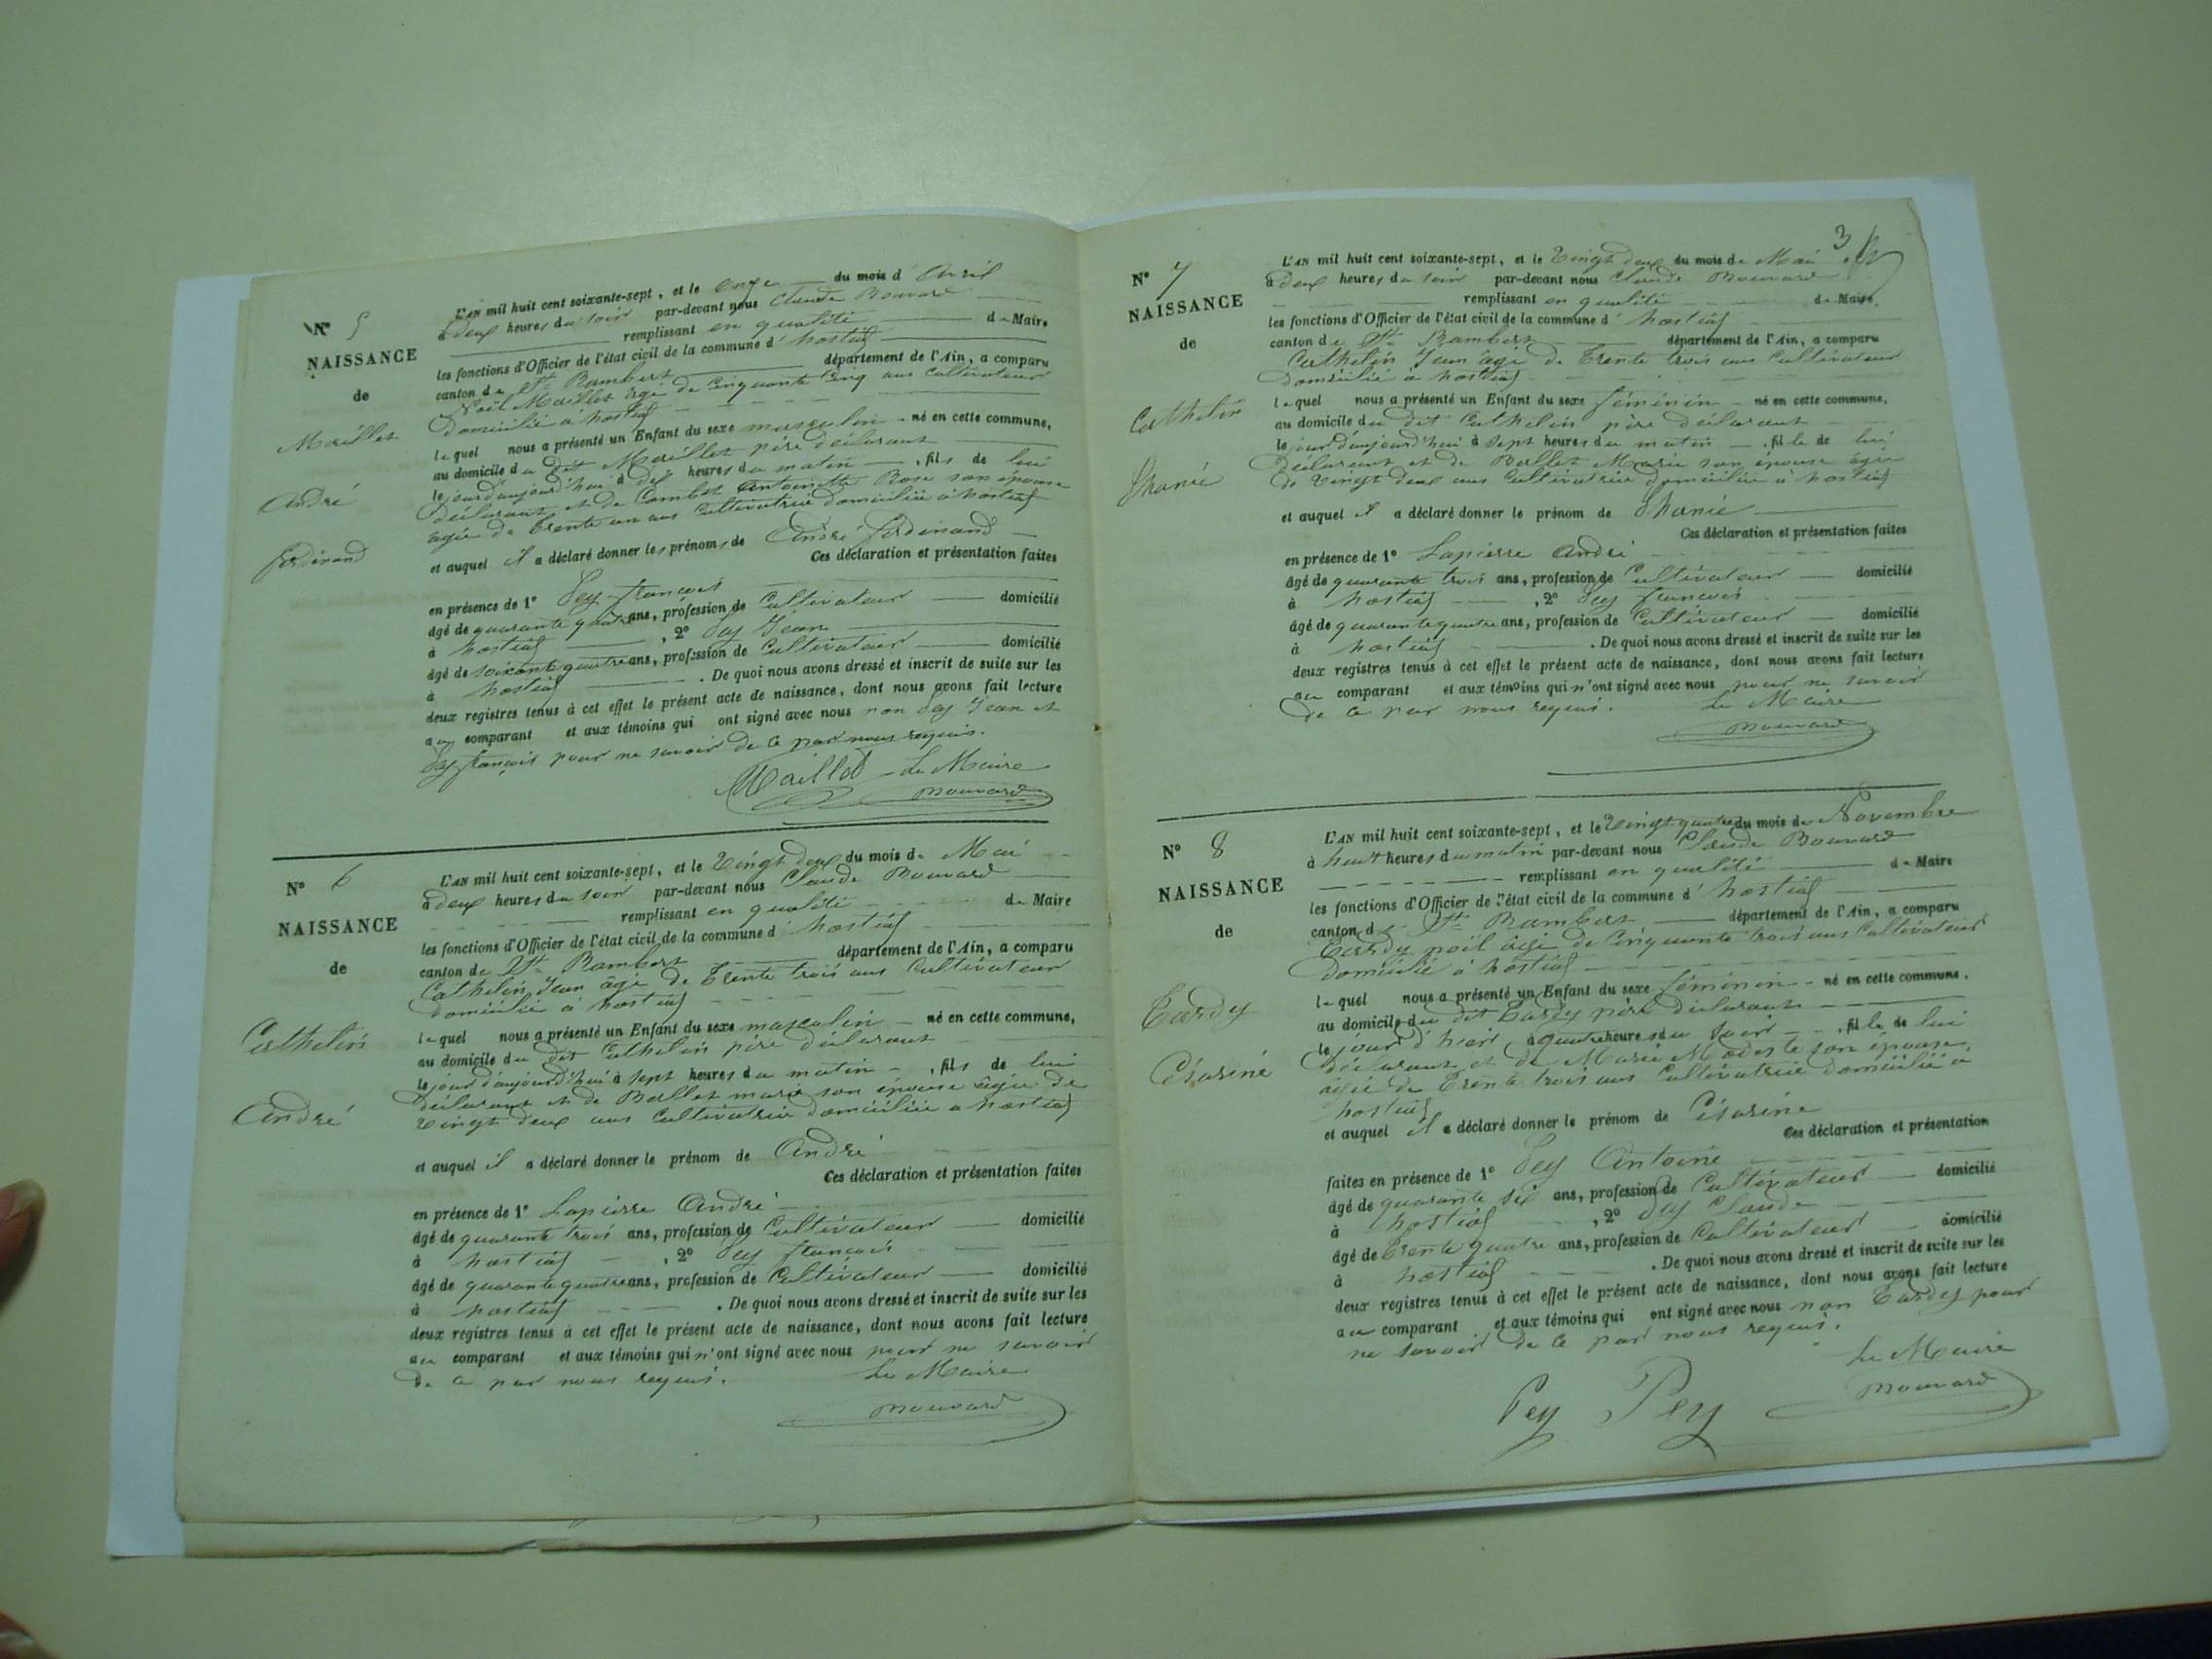 N° 5
NAISSANCE
de
Maillet
André
Ferdinand
L'AN mil huit cent soixante-sept, et le onze du mois d' Avril
à deux heures du soir par-devant nous Claude Bouvard
remplissant en qualité de Maire
les fonctions d'Officier de l'état civil de la commune d' hostiaz
canton de St Rambert département de l'Ain, a comparu
Noël Maillet âgé de Cinquante Cinq ans Cultivateur
domicilié à hostiaz
lequel nous a présenté un Enfant du sexe masculin né en cette commune,
au domicile du dit Maillet père déclarant
le jour d'aujourd'hui à dix heures du matin, fils de lui
déclarant et de Combet Antoinette Rose son épouse
agée de trente un ans Cultivatrice domiciliée à hostiaz
et auquel il a déclaré donner les prénoms de André ferdinand
Ces déclaration et présentation faites
en présence de 1° Pey françois
âgé de quarante quatre ans, profession de Cultivateur domicilié
à hostiaz, 2° Pey Jean
âgé de soixante quatre ans, profession de Cultivateur domicilié
à hostiaz. De quoi nous avons dressé et inscrit de suite sur les
deux registres tenus à cet effet le présent acte de naissance, dont nous avons fait lecture
au comparant et aux témoins qui ont signé avec nous non Pey Jean et
Pey françois pour ne savoir de ce par nous requis.
Maillet Le Maire
Bouvard
N° 6
NAISSANCE
de
Cathelin
André
L'AN mil huit cent soixante-sept, et le Vingt deux du mois de Mai
à deux heures du soir par-devant nous Claude Bouvard
remplissant en qualité de Maire
les fonctions d'Officier de l'état civil de la commune d' hostiaz
canton de St Rambert département de l'Ain, a comparu
Cathelin Jean âgé de trente trois ans Cultivateur
domicilié à hostiaz
lequel nous a présenté un Enfant du sexe masculin né en cette commune,
au domicile du dit Cathelin père déclarant
le jour d'aujourd'hui à sept heures du matin, fils de lui
déclarant et de Ballet marie son épouse âgée de
vingt deux ans Cultivatrice domiciliée à hostiaz
et auquel il a déclaré donner le prénom de André
Ces déclaration et présentation faites
en présence de 1° Lapierre André
âgé de quarante trois ans, profession de Cultivateur domicilié
à hostiaz, 2° Pey françois
âgé de quarante quatre ans, profession de Cultivateur domicilié
à hostiaz. De quoi nous avons dressé et inscrit de suite sur les
deux registres tenus à cet effet le présent acte de naissance, dont nous avons fait lecture
au comparant et aux témoins qui n'ont signé avec nous pour ne savoir
de ce par nous requis. Le Maire
Bouvard
3
N° 7
NAISSANCE
de
Cathelin
L'AN mil huit cent soixante-sept, et le Vingt deux du mois de Mai
à deux heures du soir par-devant nous Claude Bouvard
remplissant en qualité de Maire
les fonctions d'Officier de l'état civil de la commune d' hostiaz
canton de St Rambert département de l'Ain, a comparu
Cathelin Jean âgé de trente trois ans Cultivateur
domicilié à hostiaz
lequel nous a présenté un Enfant du sexe féminin né en cette commune,
au domicile du dit Cathelin père déclarant
le jour d'aujourd'hui à sept heures du matin, fille de lui
déclarant et de Ballet Marie son épouse âgée
de vingt deux ans Cultivatrice domiciliée à hostiaz
et auquel il a déclaré donner le prénom de
Ces déclaration et présentation faites
en présence de 1° Lapierre André
âgé de quarante trois ans, profession de Cultivateur domicilié
à hostiaz, 2° Pey françois
âgé de quarante quatre ans, profession de Cultivateur domicilié
à hostiaz. De quoi nous avons dressé et inscrit de suite sur les
deux registres tenus à cet effet le présent acte de naissance, dont nous avons fait lecture
au comparant et aux témoins qui n'ont signé avec nous pour ne savoir
de ce par nous requis. Le Maire
Bouvard
N° 8
NAISSANCE
de
Tardy
Césarine
L'AN mil huit cent soixante-sept, et le Vingt quatre du mois de Novembre
à huit heures du matin par-devant nous Claude Bouvard
remplissant en qualité de Maire
les fonctions d'Officier de l'état civil de la commune d' hostiaz
canton de St Rambert département de l'Ain, a comparu
Tardy noël âgé de Cinquante trois ans Cultivateur
domicilié à hostiaz
lequel nous a présenté un Enfant du sexe féminin né en cette commune,
au domicile du dit Tardy père déclarant
le jour d'hier, à quatre heures du soir, fille de lui
déclarant et de Marie Modeste son épouse
âgée de trente trois ans Cultivatrice domiciliée à
hostiaz
et auquel il a déclaré donner le prénom de Césarine
Ces déclaration et présentation
faites en présence de 1° Pey Antoine
âgé de quarante six ans, profession de Cultivateur domicilié
à hostiaz, 2° Pey Claude
âgé de trente quatre ans, profession de Cultivateur domicilié
à hostiaz. De quoi nous avons dressé et inscrit de suite sur les
deux registres tenus à cet effet le présent acte de naissance, dont nous avons fait lecture
au comparant et aux témoins qui ont signé avec nous non Tardy pour
ne savoir de ce par nous requis.
Le Maire
Pey Pey Bouvard